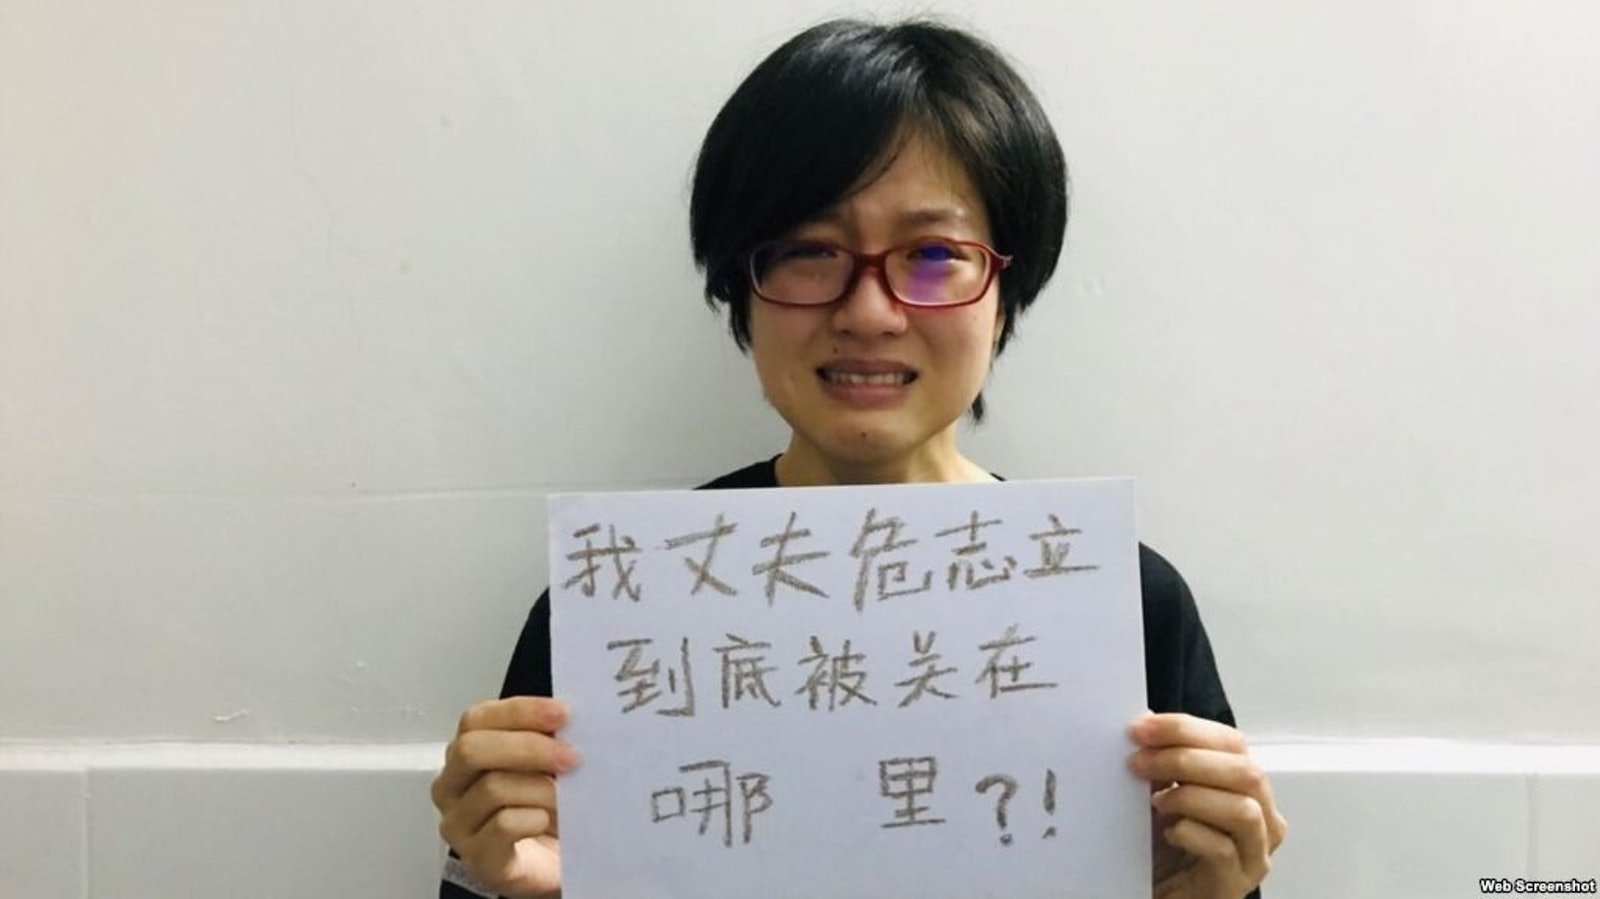 我丈夫危志立
到底被关在
哪里?!
Web Screenshot